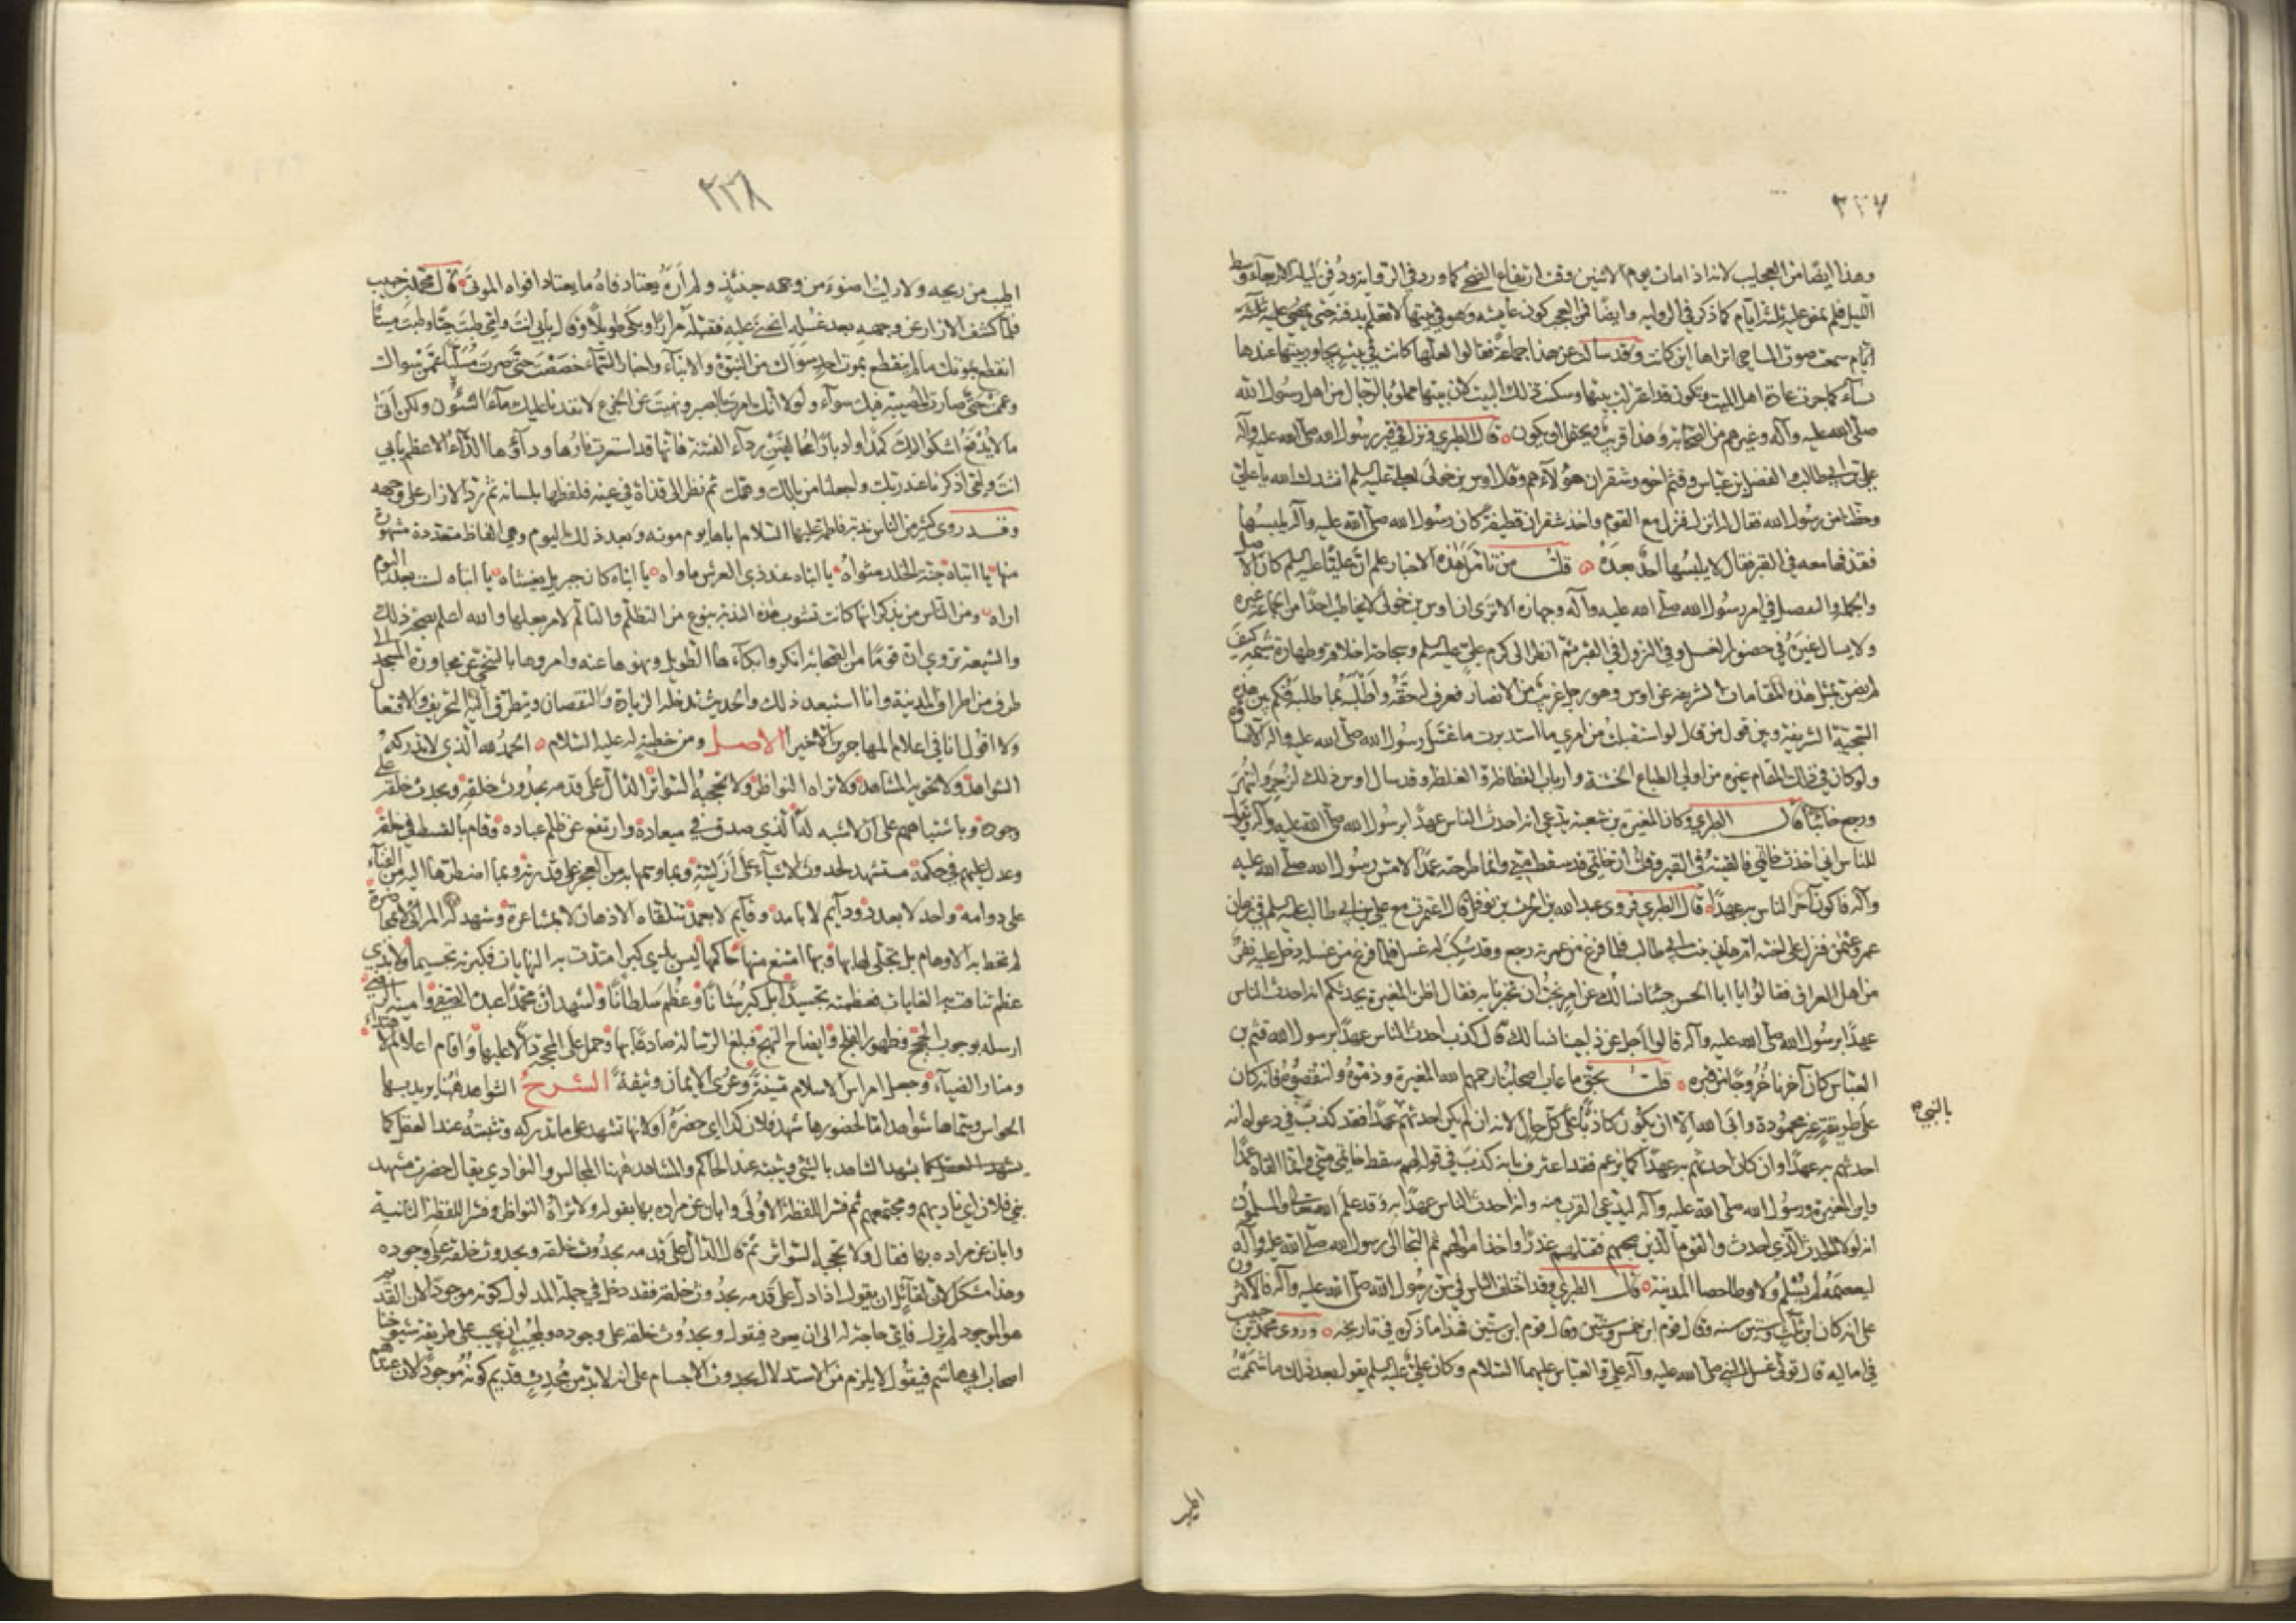 ٣٣٧
وهذا ايضا من العجايب لانه اذا مات يوم الاثنين وقت ارتفاع الضحى كما ورد في الرواية ودفن ليلة الاربعاء وسط
الليل فلم يمض عليه ثلثة ايام كما ذكر في الرواية وايضا فمن العجب كون عايشه وهو في بيتها لا تعلم بدفنه حتى
ايام سمعت صوت المساحي اتراها اين كانت وقد سالت عن هذا جماعة فقالوا لعلها كانت في بيت يجاور بيتها عندها
نساء كما جرت عادة اهل الميت وتكون قد اعتزلت بيتها وسكنت ذلك البيت لان بيتها مملو بالرجال من اهل رسول الله
صلى الله عليه وآله وغيرهم من الصحابة وهذا قريب ويحتمل ان يكون قال الطبري ونزل في قبر رسول الله صلى الله عليه وآله
علي بن ابي طالب والفضل بن عباس وقثم اخوه وشقران مولاهم وقال اوس بن خولى لعلي عليه السلم انشدك الله يا علي
وحظنا من رسول الله فقال له انزل فنزل مع القوم واخذ شقران قطيفة كان رسول الله صلى الله عليه وآله يلبسها
فقذفها معه في القبر وقال لا يلبسها احد بعده قلت من تامل هذه الاخبار علم ان عليا عليه السلم كان الاصل
والجملة والتفصيل في امر رسول الله صلى الله عليه وآله وجهازه الا ترى ان اوس بن خولى لا يخاطب احدا من الجماعة غيره
ولا يسال غيره في حضور الغسل وفي النزول في القبر ثم انظر الى كرم علي عليه السلم وسجاحة اخلاقه وطهارة شيمته كيف
لم يضن بمثل هذه المقامات الشريفة عن اوس وهو رجل غريب من الانصار فعرف له حقه واطلبه بما طلبه فكم بين هذه
السجية الشريفة وبين قول من قال لو استقبلت من امري ما استدبرت ما غسل رسول الله صلى الله عليه وآله الا نساؤه
ولو كان في ذلك المقام غيره من اولي الطباع الخشنة وارباب الفظاظة والغلظة وقد سال اوس ذلك لزجر وانتهر
ورجع خائبا قال الطبري وكان المغيرة بن شعبة يدعي انه احدث الناس عهدا برسول الله صلى الله عليه وآله ويقول
للناس اني اخذت خاتمي فالقيته في القبر وقلت ان خاتمي قد سقط مني وانما طرحته عمدا لامس رسول الله صلى الله عليه
وآله فاكون آخر الناس به عهدا قال الطبري فروى عبد الله بن الحرث بن نوفل قال اعتمرت مع علي بن ابي طالب عليه السلم في زمان
عمر وعثمن فنزل على اخته ام هاني بنت ابي طالب فلما فرغ من عمرته رجع وقد سكب له غسل فلما فرغ من غسله دخل عليه نفر
من اهل العراق فقالوا يا ابا الحسن جئنا نسالك عن امر نحب ان تخبرنا به فقال اظن المغيرة يحدثكم انه احدث الناس
عهدا برسول الله صلى الله عليه وآله قالوا اجل عن ذا جينا نسالك قال كذب احدث الناس عهدا برسول الله قثم بن
العباس كان آخرنا خروجا من قبره قلت بحق ما عاب اصحابنا رحمهم الله المغيرة وذموه وانتقصوه فانه كان
على طريقة غير محمودة وابى الله الا ان يكون كاذبا على كل حال لانه ان لم يكن احدثهم عهدا فقد كذب في دعواه انه
بالنبي ص
احدثهم به عهدا وان كان احدثهم به عهدا كما يزعم فقد اعترف بانه كذب في قوله لهم سقط خاتمي مني وانما القاه عمدا
واين المغيرة ورسول الله صلى الله عليه وآله ليدعي القرب منه وانه احدث الناس عهدا به وقد علم الله تعالى والمسلمون
انه لولا الحدث الذي احدث والقوم الذين صحبهم فقتلهم غدرا واخذ اموالهم ثم التجا الى رسول الله صلى الله عليه وآله
ليعصمه لم يسلم ولا وطا حصا المدينة قال الطبري وقد اختلف الناس في سن رسول الله صلى الله عليه وآله فالاكثرون
على انه كان ابن ثلث وستين سنه وقال قوم ابن خمس وستين وقال قوم ابن ستين فهذا ما ذكره في تاريخه وروى محمد بن حبيب
في اماليه قال تولى غسل النبي صلى الله عليه وآله علي والعباس عليهما السلام وكان علي عليه السلم يقول بعد ذلك ما شممت
اطيب
٣٣٨
اطيب من ريحه ولا رايت اضوء من وجهه حينئذ ولم اره يعتاد فاه ما يعتاد افواه الموتى قال محمد بن حبيب
فلما كشف الازار عن وجهه بعد غسله انحنى عليه فقبله مرارا وبكى طويلا وقال بابي انت وامي طبت حيا وطبت ميتا
انقطع بموتك ما لم ينقطع بموت احد سواك من النبوة والانباء واخبار السماء خصصت حتى صرت مسليا عمن سواك
وعممت حتى صارت المصيبة فيك سواء ولولا انك امرت بالصبر ونهيت عن الجزع لانفدنا عليك ماء الشئون ولكن اتى
ما لا يدفع اشكو اليك كمدا وادبارا مخالفين وداء الفتنة فانها قد استعرت نارها وداؤها الداء الاعظم بابي
انت وامي اذكرنا عند ربك واجعلنا من بالك وهمك ثم نظر الى قذاة في عينه فلفظها بلسانه ثم رد الازار على وجهه
وقد روى كثير من الناس ندبة فاطمة عليها السلام اباها يوم موته وبعد ذلك اليوم وهي الفاظ متعددة مشهورة
منها يا ابتاه جنة الخلد مثواه يا ابتاه عند ذي العرش ماواه يا ابتاه كان جبريل يغشاه يا ابتاه لست بعد اليوم
اراه ومن الناس من يذكر انها كانت تشوب هذه الندبة بنوع من التظلم والتالم لامر يغلبها والله اعلم بصحة ذلك
والشيعة تروي ان قوما من الصحابة انكروا بكاءها الطويل ونهوها عنه وامروها بالتنحي عن مجاورة المسجد الى
طرف من اطراف المدينة وانا استبعد ذلك والحديث تدخله الزيادة والنقصان ويتطرق اليه التحريف والافتعال
ولا اقول انا في اعلام المهاجرين الا خيرا الاصل ومن خطبة له عليه السلام الحمد لله الذي لا تدركه
الشواهد ولا تحويه المشاهد ولا تراه النواظر ولا تحجبه السواتر الدال على قدمه بحدوث خلقه وبحدوث خلقه على
وجوده وباشتباههم على ان لا شبه له الذي صدق في ميعاده وارتفع عن ظلم عباده وقام بالقسط في خلقه
وعدل عليهم في حكمه مستشهد بحدوث الاشياء على ازليته وبما وسمها به من العجز على قدرته وبما اضطرها اليه من الفناء
على دوامه واحد لا بعدد ودايم لا بامد وقايم لا بعمد تتلقاه الاذهان لا بمشاعرة وتشهد له المرائي لا بمحاضرة
لم تحط به الاوهام بل تجلى لها بها وبها امتنع منها واليها حاكمها ليس بذي كبر امتدت به النهايات فكبرته تجسيما ولا بذي
عظم تناهت به الغايات فعظمته تجسيدا بل كبر شانا وعظم سلطانا واشهد ان محمدا عبده الصفي وامينه الرضي
ارسله بوجوب الحجج وظهور الفلج وايضاح المنهج فبلغ الرسالة صادعا بها وحمل على المحجة دالا عليها واقام اعلام الاهتداء
ومنار الضياء وجعل امراس الاسلام متينة وعرى الايمان وثيقة الشرح الشواهد ههنا يريد بها
الحواس وسماها شواهد اما لحضورها شهد فلان كذا اي حضره او لانها تشهد على ما تدركه وتثبته عند العقل كما
يشهد الشاهد بالشي ويثبته عند الحاكم والمشاهد ههنا المجالس والنوادي يقال حضرت مشهد
بني فلان اي ناديهم ومجتمعهم ثم فسر اللفظة الاولى وابان عن مراده بها بقوله ولا تراه النواظر وفسر اللفظة الثانية
وابان عن مراده بها فقال ولا تحجبه السواتر ثم قال الدال على قدمه بحدوث خلقه وبحدوث خلقه على وجوده
وهذا مشكل لان لقائل ان يقول اذا دل على قدمه بحدوث خلقه فقد دخل في جملة المدلول كونه موجودا لان القديم
هو الموجود لم يزل فاي حاجة له الى ان يعود فيقول وبحدوث خلقه على وجوده ولمجيب ان يجيب على طريقة شيوخنا
اصحاب ابي هاشم فيقول لا يلزم من الاستدلال بحدوث الاجسام على انه لا بد من محدث قديم كونه موجودا لان عندهم